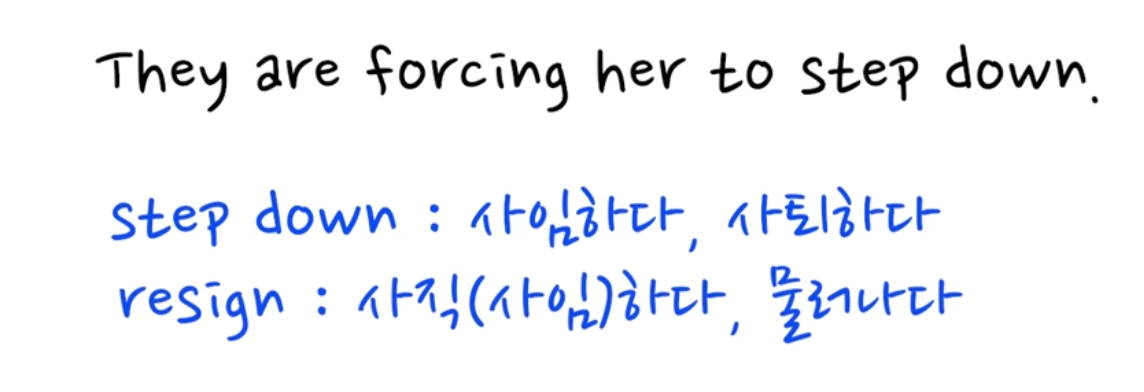 They are forcing her to step down.
step down : 사임하다, 사퇴하다
resign : 사직(사임)하다, 물러나다